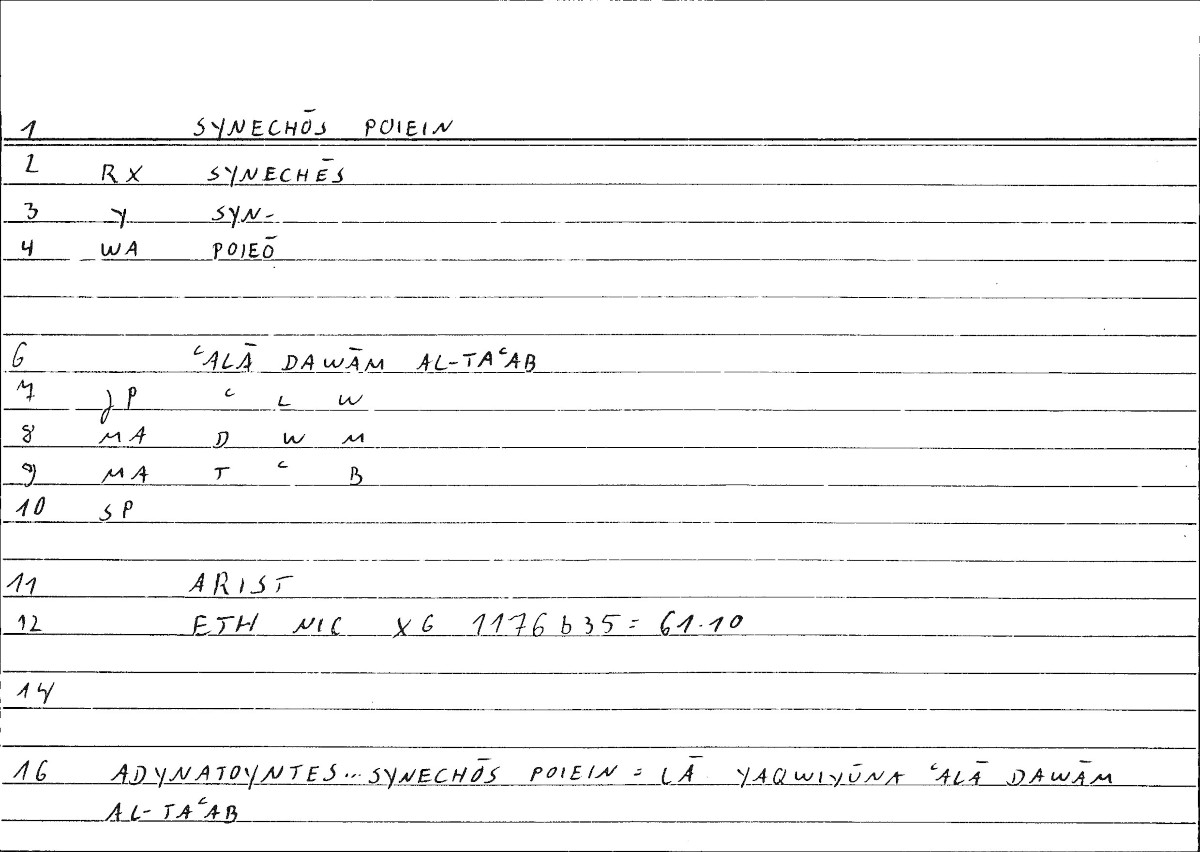 1 SYNECHŌS POIEIN
2 RX SYNECHĒS
3 Y SYN-
4 WA POIEŌ
6 ᶜALĀ DAWĀM AL-TAᶜAB
7 JP ᶜ L W
8 MA D W M
9 MA T ᶜ B
10 SP
11 ARIST
12 ETH NIC X6 1176 b35 = 61.10
14
16 ADYNATOYNTES... SYNECHŌS POIEIN = LĀ YAQWIYŪNA ᶜALĀ DAWĀM
AL-TAᶜAB